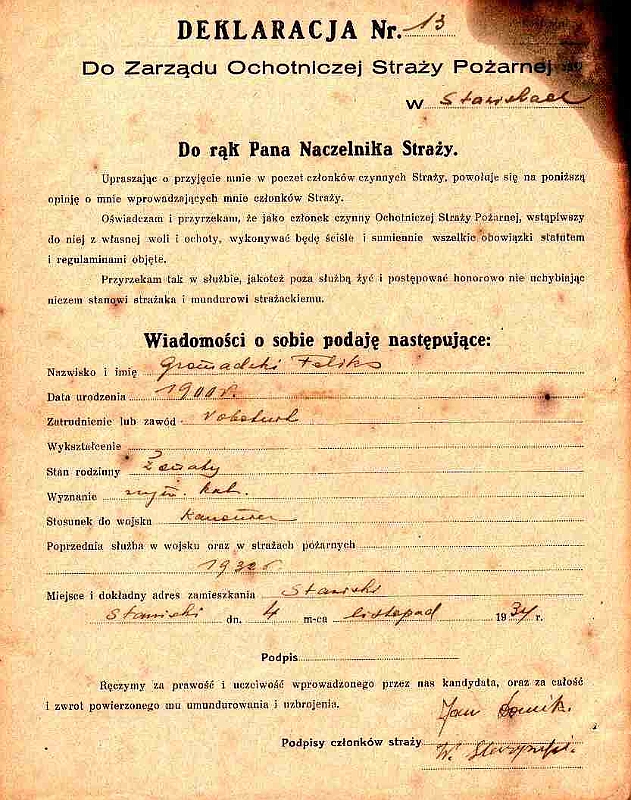 DEKLARACJA Nr. 13
Do Zarządu Ochotniczej Straży Pożarnej
w
Do rąk Pana Naczelnika Straży.
Upraszając o przyjęcie mnie w poczet członków czynnych Straży, powołuję się na poniższą
opinję o mnie wprowadzających mnie członków Straży.
Oświadczam i przyrzekam, że jako członek czynny Ochotniczej Straży Pożarnej, wstąpiwszy
do niej z własnej woli i ochoty, wykonywać będę ściśle i sumiennie wszelkie obowiązki statutem
i regulaminami objęte.
Przyrzekam tak w służbie, jakoteż poza służbą żyć i postępować honorowo nie uchybiając
niczem stanowi strażaka i mundurowi strażackiemu.
Wiadomości o sobie podaję następujące:
Nazwisko i imię Gromadzki Feliks
Data urodzenia 1900 r.
Zatrudnienie lub zawód
Wykształcenie
Stan rodzinny Żonaty
Wyznanie rzym. kat.
Stosunek do wojska
Poprzednia służba w wojsku oraz w strażach pożarnych
1932 r
Miejsce i dokładny adres zamieszkania Stawiski
Stawiski dn. 4 m-ca listopad 1934 r.
Podpis
Ręczymy za prawość i uczciwość wprowadzonego przez nas kandydata, oraz za całość
i zwrot powierzonego mu umundurowania i uzbrojenia.
Jan
Podpisy członków straży W.